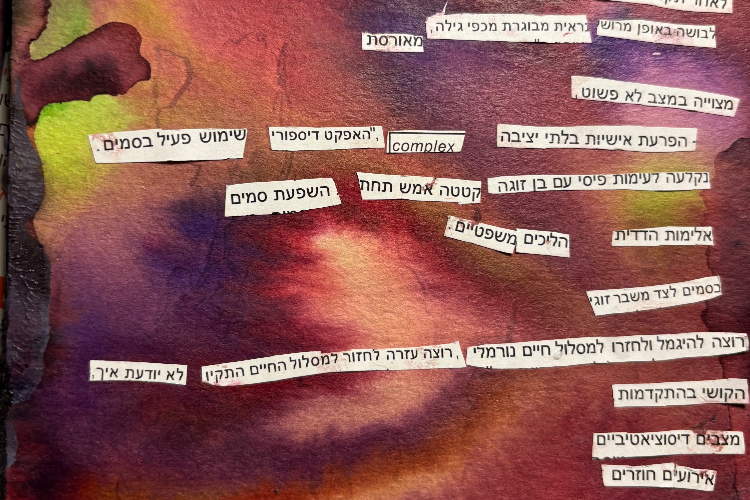 לאחר
לבושה באופן מרושל נראית מבוגרת מכפי גילה, מאורסת
מצוייה במצב לא פשוט,
- הפרעת אישיות בלתי יציבה complex ,"האפקט דיספורי שימוש פעיל בסמים.
נקלעה לעימות פיסי עם בן זוגה קטטה אמש תחת השפעת סמים
אלימות הדדית הליכים משפטיים.
בסמים לצד משבר זוגי
רוצה להיגמל ולחזרו למסלול חיים נורמלי רוצה עזרה לחזור למסלול החיים התקין, לא יודעת איך,
הקושי בהתקדמות
מצבים דיסוציאטיביים
אירועים חוזרים